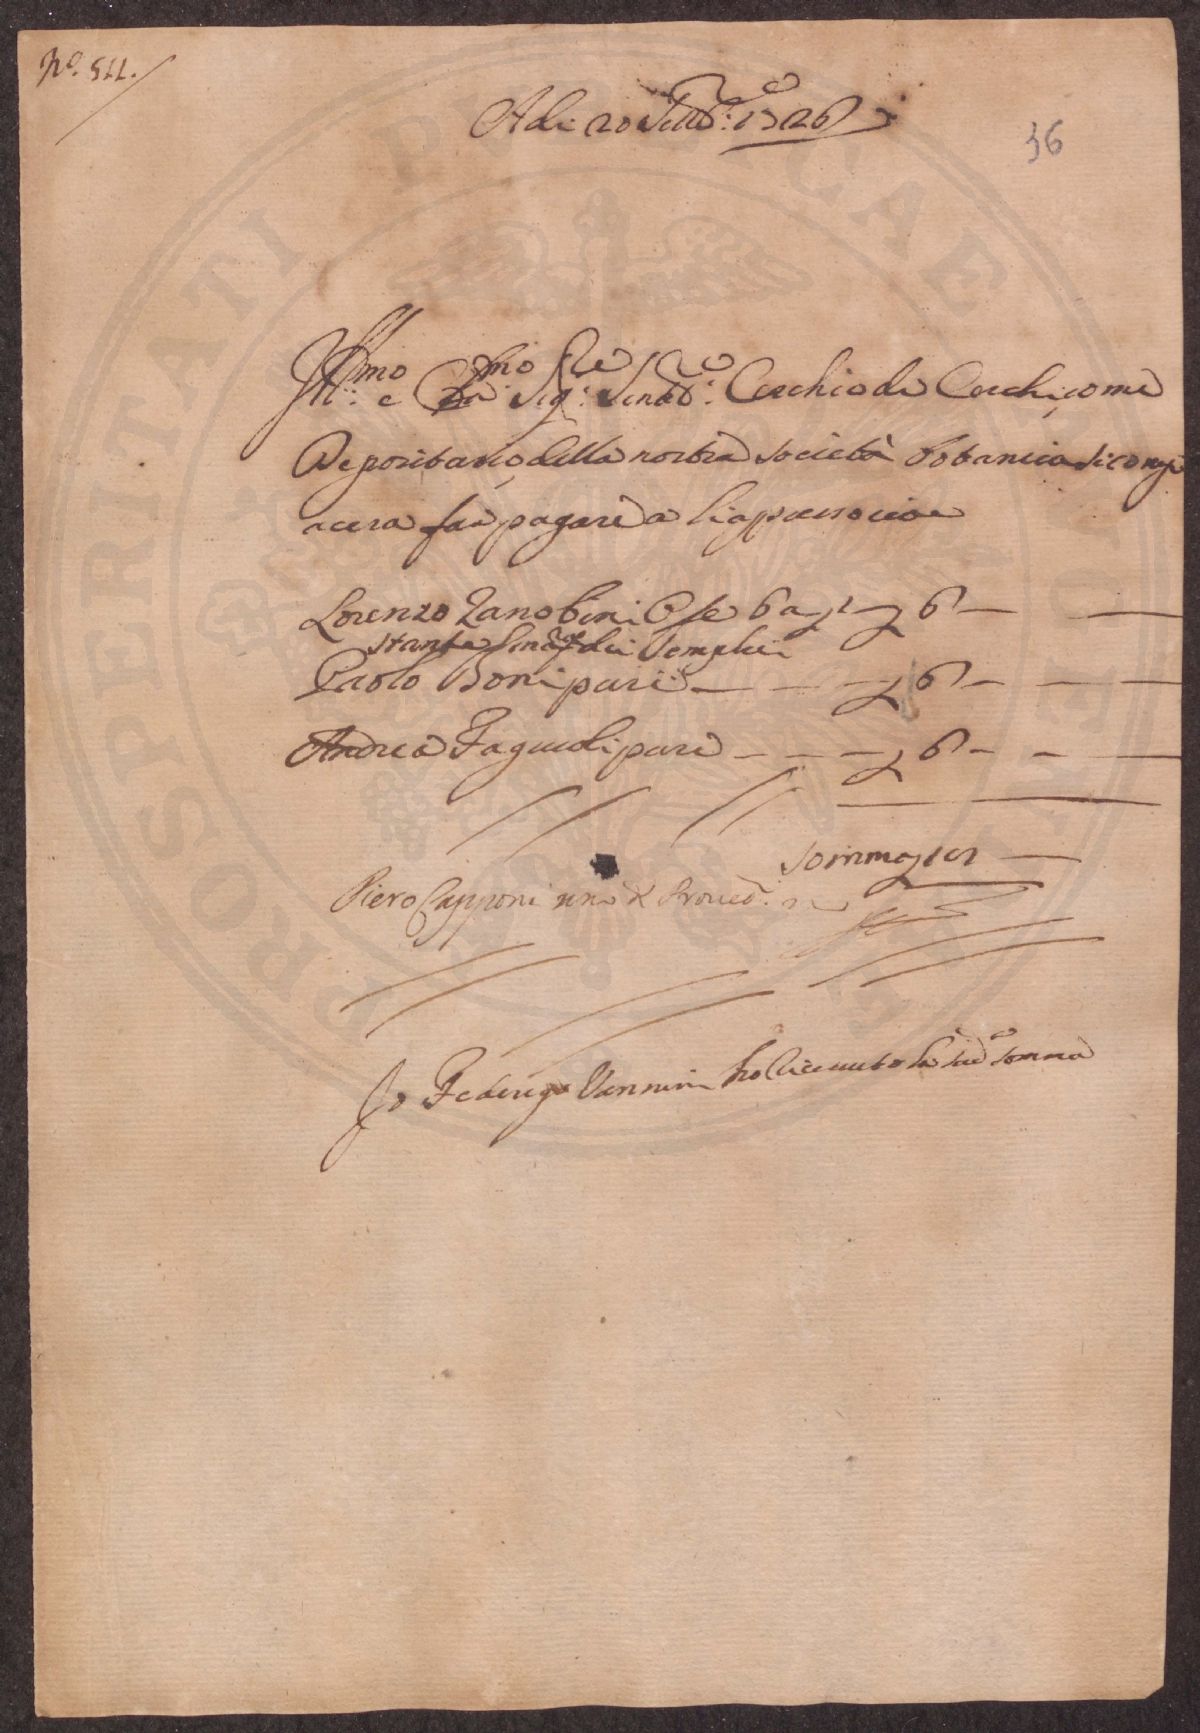 N.º 511.
A di 20 Sett.e 1726
36
Ill.mo e Cla.mo Sig.re Senat.re Cerchio de Cerchi come
Depositario della nostra società botanica si comp
acera far pagare a li apresso cioe
Lorenzo Zanobini Ope 6 a £ 1 £ 6 —
Paolo Boni pure — — — £ 6 — — —
Andrea Faguoli pure — — — £ 6 — — —
Somma £ 18 —
Piero Capponi uno de Proved.ri
Io Federigo Vannini ho riceuuto la sud.a somma
PROSPERITATI PUBLICAE